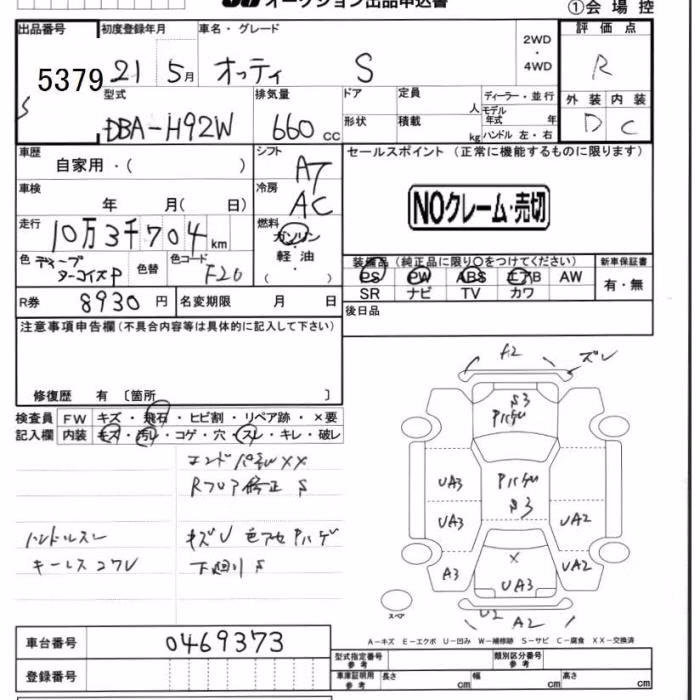 オークション出品申込書 ①会場控
出品番号 初度登録年月 車名・グレード 2WD・4WD 評価点
5379 21 5月 オッティ S R
型式 排気量 ドア 定員 人 ディーラー・並行 外装 内装
DBA-H92W 660cc 形状 積載 kg モデル年式 年 ハンドル 左・右 D C
車歴 シフト セールスポイント (正常に機能するものに限ります)
自家用・( ) AT
車検 冷房 NOクレーム・売切
年 月( 日) AC
走行 燃料
10万3千704km ガソリン・軽油
色 ディープターコイズP 色替 色コード F20 ( ) 装備品 (純正品に限り○をつけてください) 新車保証書
PS PW ABS エアB AW 有・無
R券 8930円 名変期限 月 日 SR ナビ TV カワ
注意事項申告欄(不具合内容等は具体的に記入して下さい) 後日品
修復歴 有 〔箇所 〕
検査員 FW キズ・飛石・ヒビ割・リペア跡・×要
記入欄 内装 キズ・汚レ・コゲ・穴・スレ・キレ・破レ
XX
Rフロア修正 S
ハンドルスレ
キーレス
下廻り S
A2 ズレ
S3
Pハゲ
UA3 Pハゲ
S3
UA3 UA2
×
A3 UA3 UA2
U2
スペア A2
A-キズ E-エクボ U-凹み W-補修跡 S-サビ C-腐食 XX-交換済
車台番号 0469373
型式指定番号 参考 類別区分番号 参考
登録番号 車庫証明用 参考 長さ cm 幅 cm 高さ cm